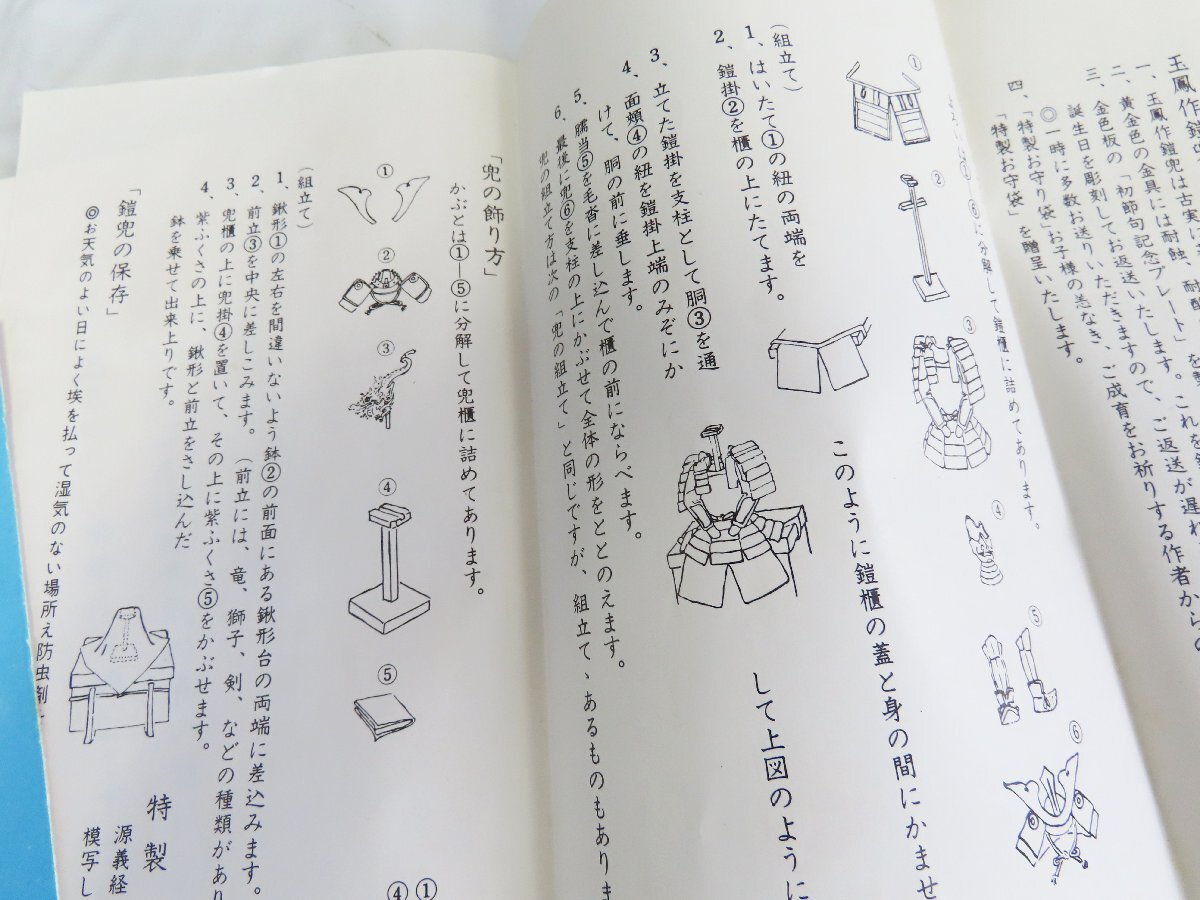 玉鳳作鎧兜
一、玉鳳作鎧兜は古実に
二、黄金色の金具には耐蝕、耐酸
三、金色板の「初節句記念プレート」を
誕生日を彫刻してお返送いたします。これを
◎一時に多数お送りいただきますので、ご返送が遅れ
四、「特製お守り袋」お子様の恙なき、ご成育をお祈りする作者からの
「特製お守袋」を贈呈いたします。
よろいは①—⑥に分解して鎧櫃に詰めてあります。
①
②
③
④
⑤
⑥
(組立て)
1、はいたて①の紐の両端を
このように鎧櫃の蓋と身の間にかませ
2、鎧掛②を櫃の上にたてます。
して上図のように
3、立てた鎧掛を支柱として胴③を通
4、面頬④の紐を鎧掛上端のみぞにか
けて、胴の前に垂します。
5、臑当⑤を毛沓に差し込んで櫃の前にならべます。
6、最後に兜⑥を支柱の上にかぶせて全体の形をととのえます。
兜の組立て方は次の「兜の組立て」と同じですが、組立て、あるものもありま
「兜の飾り方」
かぶとは①—⑤に分解して兜櫃に詰めてあります。
①
②
③
④
⑤
①
④
(組立て)
1、鍬形①の左右を間違いないよう鉢②の前面にある鍬形台の両端に差込みます。
2、前立③を中央に差しこみます。(前立には、竜、獅子、剣、などの種類があり
3、兜櫃の上に兜掛④を置いて、その上に紫ふくさ⑤をかぶせます。
4、紫ふくさの上に、鍬形と前立をさし込んだ
鉢を乗せて出来上りです。
特製
源義経
模写し
「鎧兜の保存」
◎お天気のよい日によく埃を払って湿気のない場所え防虫剤